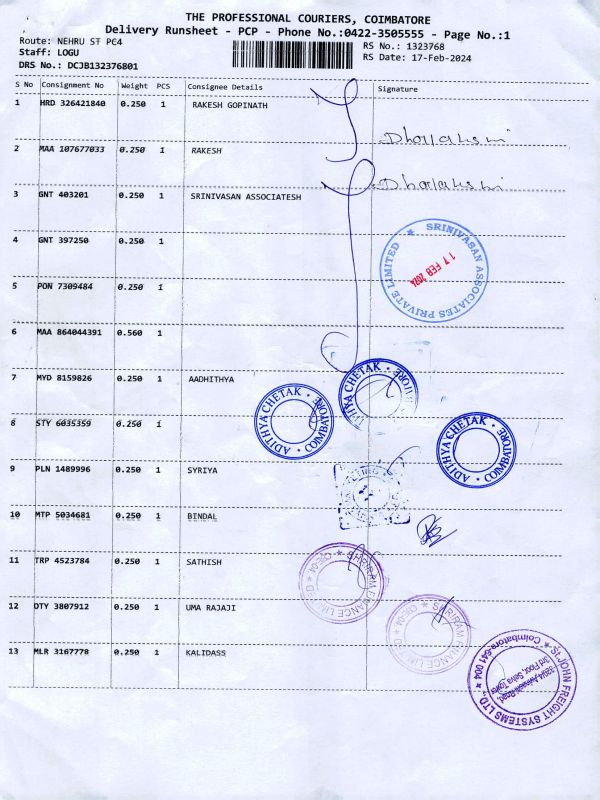 THE PROFESSIONAL COURIERS, COIMBATORE
Delivery Runsheet - PCP - Phone No.:0422-3505555 - Page No.:1
Route: NEHRU ST PC4
RS No.: 1323768
Staff: LOGU
RS Date: 17-Feb-2024
DRS No.: DCJB132376801
S No Consignment No Weight PCS Consignee Details Signature
1 HRD 326421840 0.250 1 RAKESH GOPINATH
2 MAA 107677033 0.250 1 RAKESH
3 GNT 403201 0.250 1 SRINIVASAN ASSOCIATESH
4 GNT 397250 0.250 1
SRINIVASAN ASSOCIATES PRIVATE LIMITED ★
17 FEB 2024
5 PON 7309484 0.250 1
6 MAA 864044391 0.560 1
7 MYD 8159826 0.250 1 AADHITHYA
ADITHYA CHETAK • COIMBATORE •
8 STY 6035359 0.250 1
ADITHYA CHETAK • COIMBATORE •
ADITHYA CHETAK • COIMBATORE •
9 PLN 1489996 0.250 1 SYRIYA
10 MTP 5034681 0.250 1 BINDAL
11 TRP 4523784 0.250 1 SATHISH
SHRIRAM FINANCE LIMITED ★ CBE-04
12 OTY 3807912 0.250 1 UMA RAJAJI
SHRIRAM FINANCE LIMITED ★ CBE-04
13 MLR 3167778 0.250 1 KALIDASS
ST. JOHN FREIGHT SYSTEMS LTD., ★ Coimbatore-641 004 ★
3rd Floor,